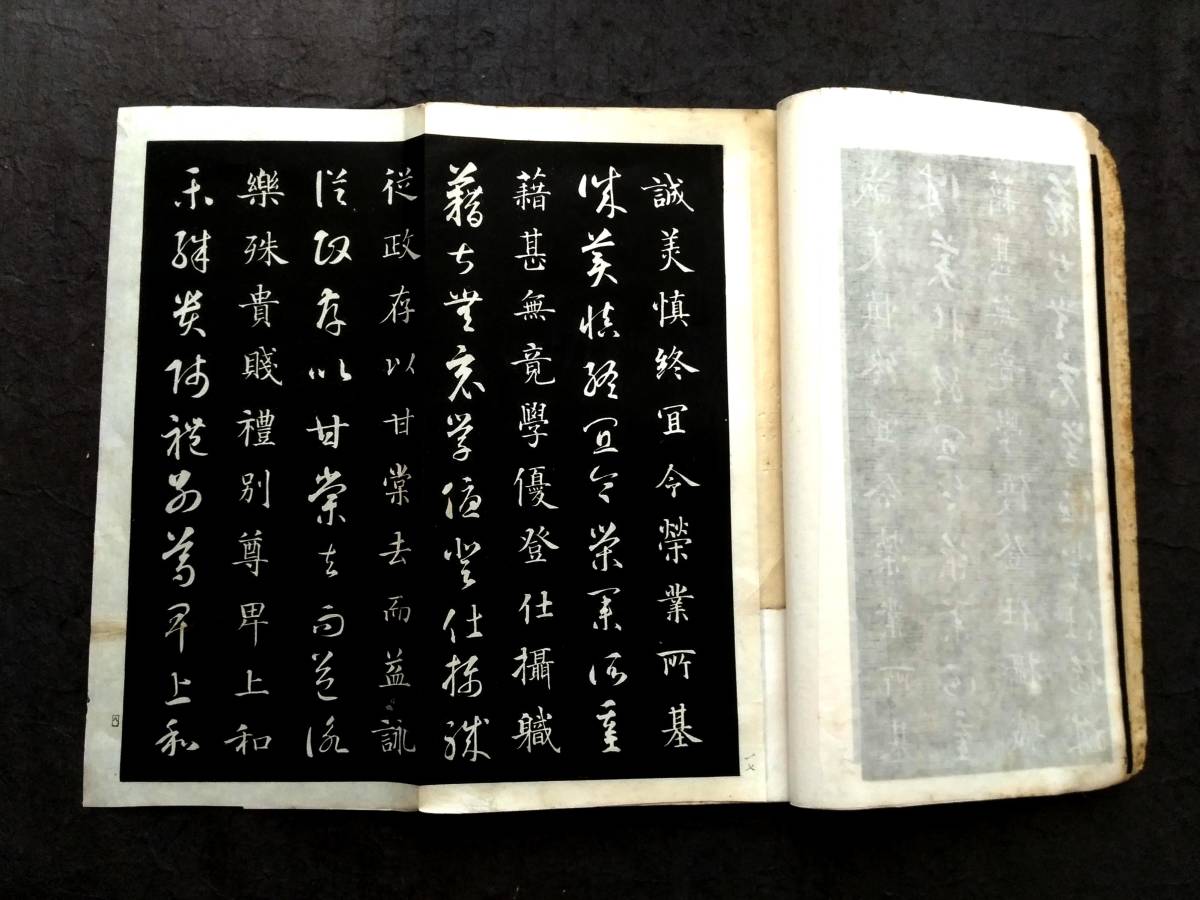 誠美慎終宜令榮業所基
誠美慎終宜令榮業所基
藉甚無竟學優登仕攝職
藉甚無竟學優登仕攝職
從政存以甘棠去而益詠
從政存以甘棠去而益詠
樂殊貴賤禮別尊卑上和
樂殊貴賤禮別尊卑上和
一七